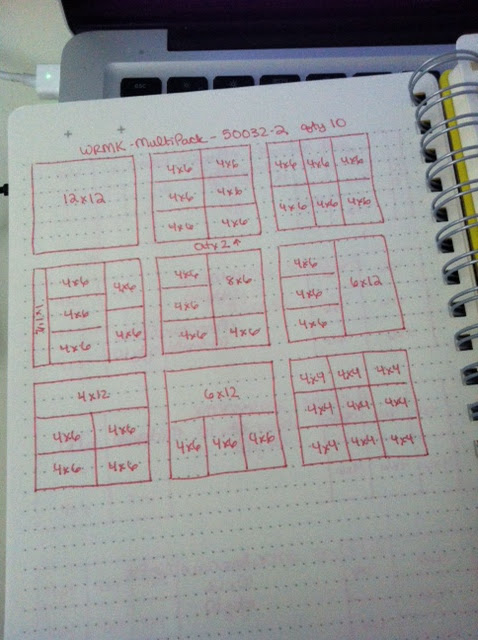 WRMK - MultiPack - 50032-2 qty 10
12x12
4x6 4x6
4x6 4x6
4x6 4x6
Qty 2 ↑
4x6 4x6 4x6
4x6 4x6 4x6
4x6 4x6
4x6
4x6 4x6
4x6 8x6
4x6
4x6 4x6
4x6
4x6 6x12
4x6
4x12
4x6 4x6
4x6 4x6
6x12
4x6 4x6 4x6
4x4 4x4 4x4
4x4 4x4 4x4
4x4 4x4 4x4